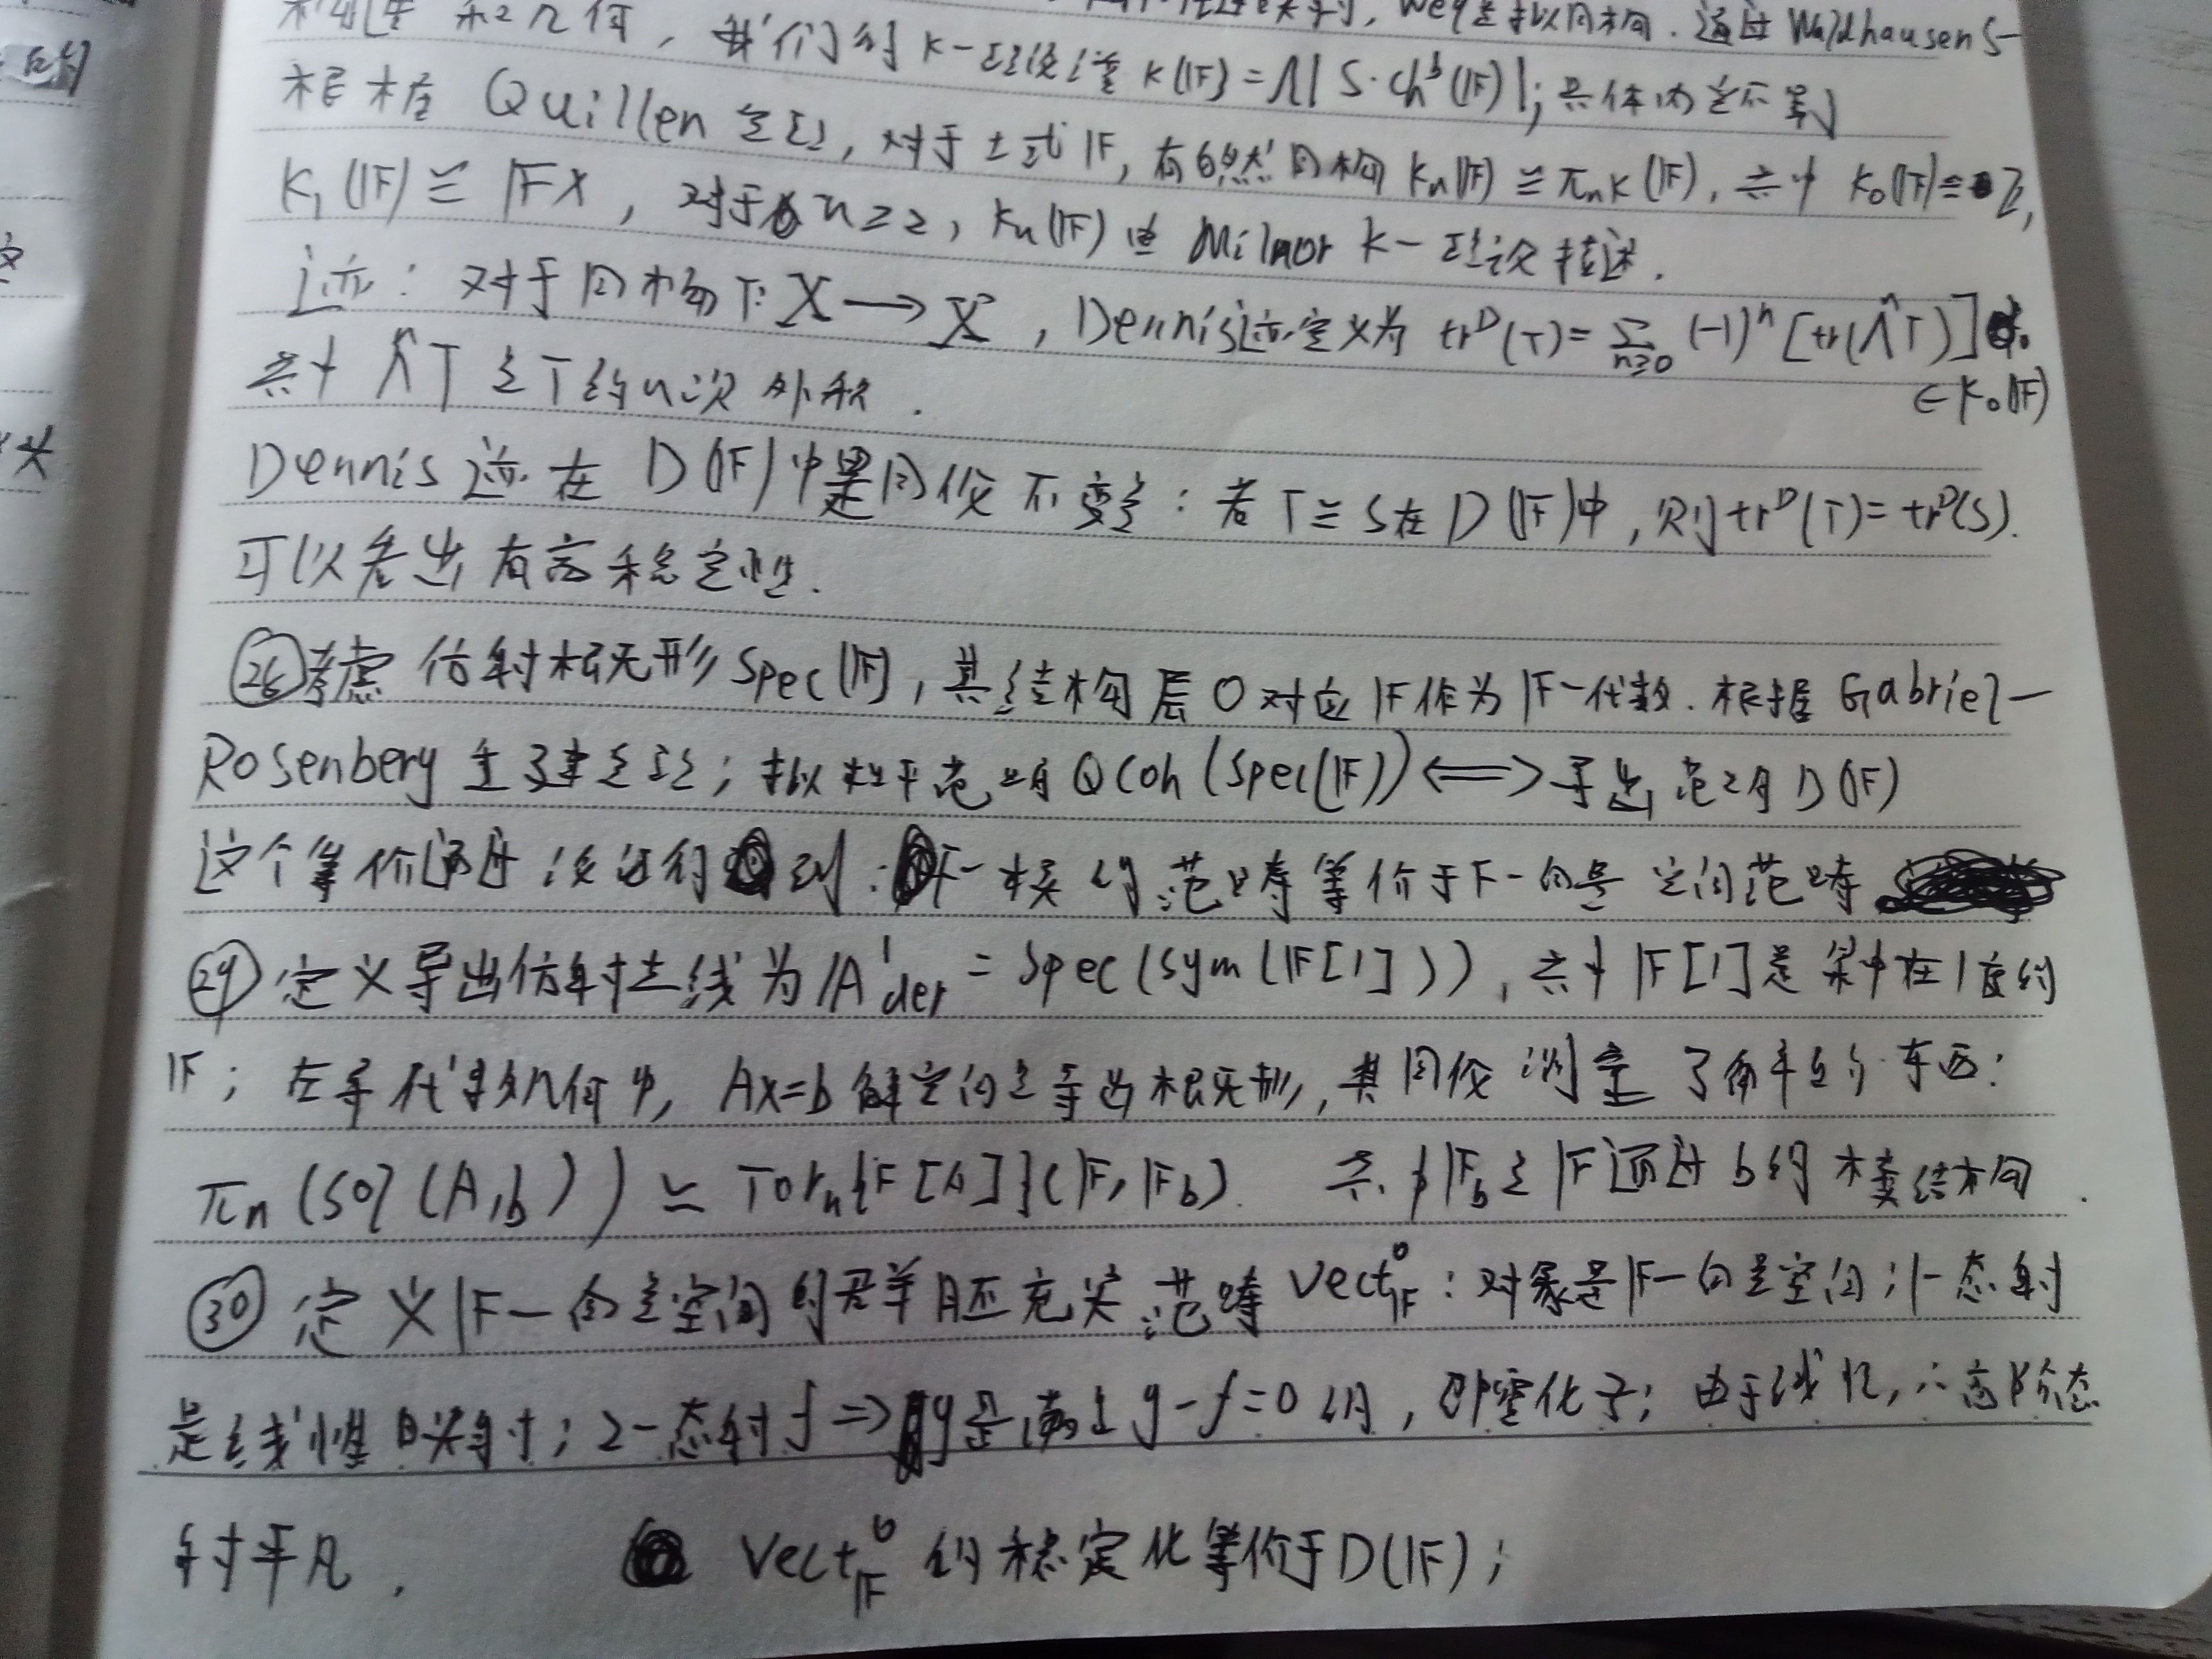 和几何, 我们的 K-理论谱 K(IF)=Λ|S·Ch^b(IF)|; 具体内定不写
Weq是拟同构. 通过 Waldhausen S-
根据 Quillen 定理, 对于域 IF, 有自然同构 Kn(IF) ≅ πnK(IF), 其中 K₀(IF)≅Z,
K₁(IF) ≅ IFx, 对于 n≥2, Kn(IF) 由 Milnor K-理论描述.
迹: 对于同构 T: X → X, Dennis迹定义为 tr^D(T)=∑_{n≥0} (-1)^n [tr(Λ^n T)]
∈K₀(IF)
其中 Λ^n T 是 T 的 n 次 外积.
Dennis 迹 在 D(IF)中是同伦不变: 若 T≅S在 D(IF)中, 则 tr^D(T)=tr^D(S).
可以看出 有高稳定性.
㉖考虑 仿射概形 Spec(IF), 其结构层 O 对应 IF作为 IF-代数. 根据 Gabriel-
Rosenberg 重建定理; 拟 范畴 QCoh(Spec(IF)) ⟺ 导出范畴 D(IF)
这个等价通过 得到: F-模的范畴等价于F-向量空间范畴
㉙ 定义导出仿射直线为 /A¹der = Spec(Sym(IF[1])), 其中 IF[1]是集中在1度的
IF; 在导代数几何中, Ax=b 解空间是导出概形, 其同伦 了 的东西:
πn(Sol(A,b)) ≃ Torn{F[A]}(IF, IFb). 其中IFb是IF通过b的模结构.
㉚ 定义IF-向量空间的 群胚充实 范畴 Vect°IF: 对象是IF-向量空间; 1-态射
是线性映射; 2-态射 f⇒g是满足 g-f=0的, 即 化子; 由于线性, ∴高阶态
射平凡. Vect°IF 的稳定化等价于D(IF);